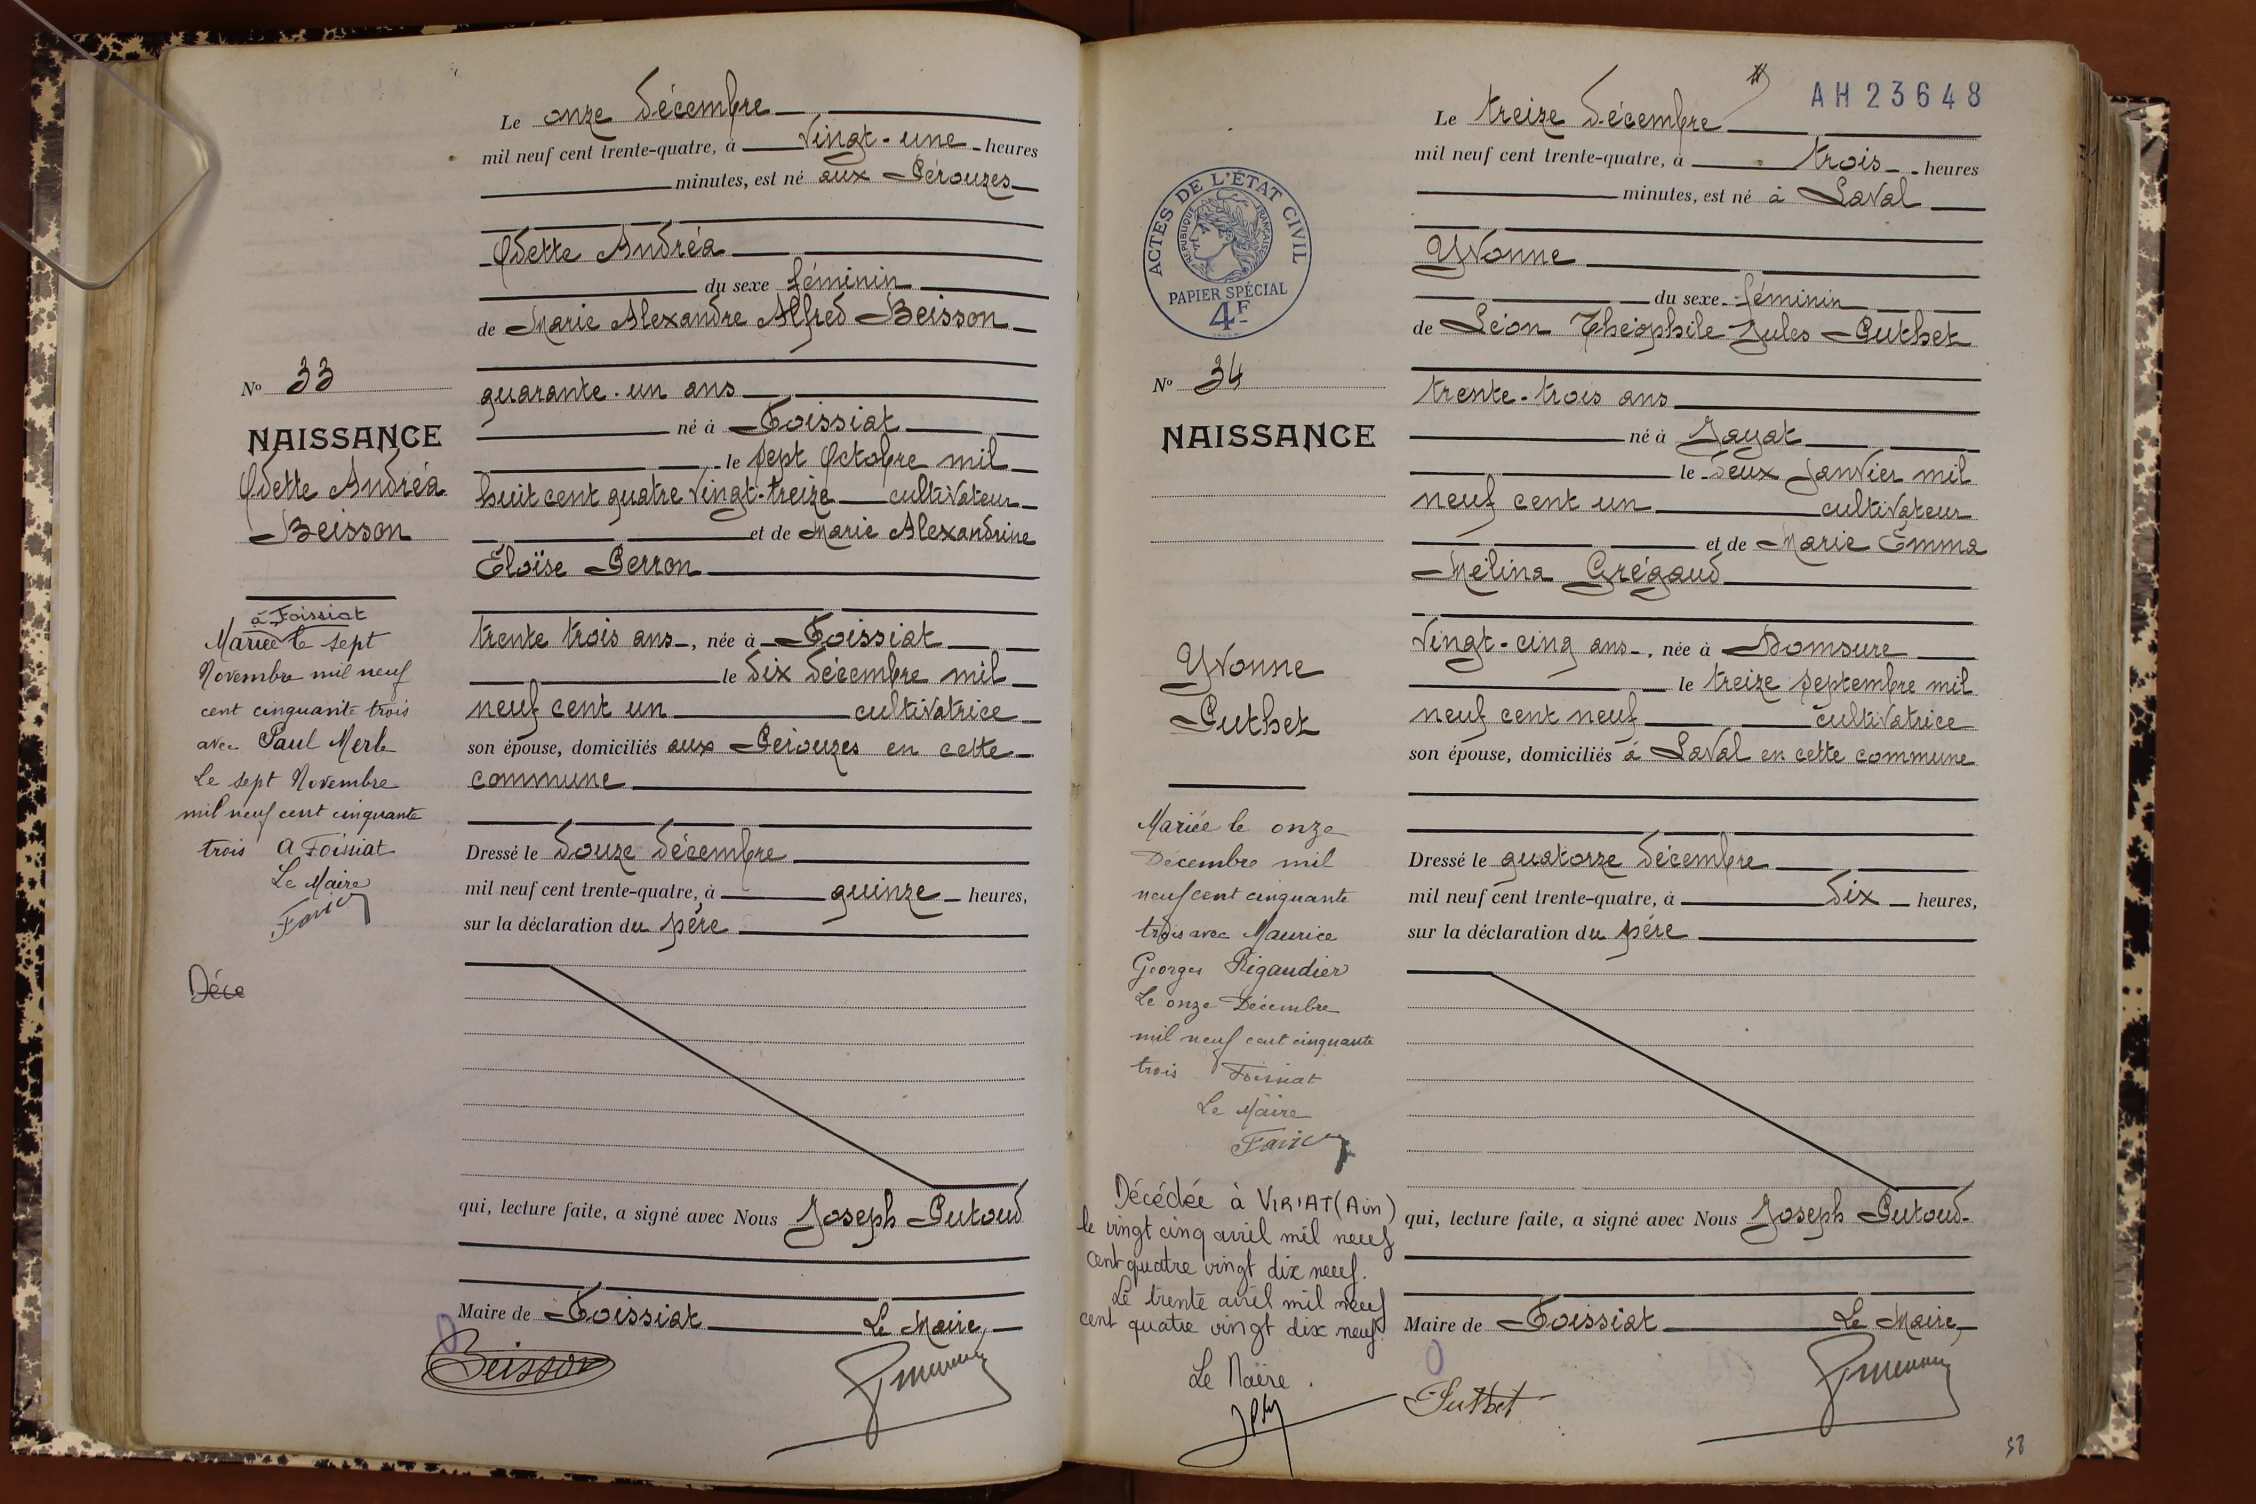 Le onze Décembre
mil neuf cent trente-quatre, à vingt-une heures
minutes, est né aux Pérouzes
Odette Andréa
du sexe féminin
de Marie Alexandre Alfred Beisson
No 33
quarante-un ans
NAISSANCE
né à Foissiat
le sept Octobre mil
Odette Andréa
huit cent quatre vingt-treize cultivateur
Beisson
et de Marie Alexandrine
Éloïse Perron
à Foissiat
Mariée le sept
Novembre mil neuf
cent cinquante trois
avec Paul Merle
Le sept Novembre
mil neuf cent cinquante
trois A Foissiat
Le Maire
Déce
trente trois ans, née à Foissiat
le dix décembre mil
neuf cent un cultivatrice
son épouse, domiciliés aux Pérouzes en cette
commune
Dressé le douze Décembre
mil neuf cent trente-quatre, à quinze heures,
sur la déclaration du père
qui, lecture faite, a signé avec Nous Joseph Putoud
Maire de Foissiat Le Maire,
Beisson
AH 23648
Le treize Décembre
mil neuf cent trente-quatre, à trois heures
minutes, est né à Laval
ACTES DE L'ÉTAT CIVIL
RÉPUBLIQUE FRANÇAISE
PAPIER SPÉCIAL
4F
Yvonne
du sexe féminin
de Léon Théophile Jules Puthet
No 34
trente-trois ans
NAISSANCE
né à Jayat
le deux Janvier mil
neuf cent un cultivateur
et de Marie Emma
Mélina Grégaud
Yvonne
Puthet
vingt-cinq ans, née à Domsure
le treize septembre mil
neuf cent neuf cultivatrice
son épouse, domiciliés à Laval en cette commune
Mariée le onze
Décembre mil
neuf cent cinquante
trois avec Maurice
Georges Rigaudier
Le onze Décembre
mil neuf cent cinquante
trois Foissiat
Le Maire
Dressé le quatorze Décembre
mil neuf cent trente-quatre, à dix heures,
sur la déclaration du père
Décédée à VIRIAT (Ain)
le vingt cinq avril mil neuf
cent quatre vingt dix neuf.
Le trente avril mil neuf
cent quatre vingt dix neuf.
Le Maire.
qui, lecture faite, a signé avec Nous Joseph Putoud
Maire de Foissiat Le Maire,
Puthet
58